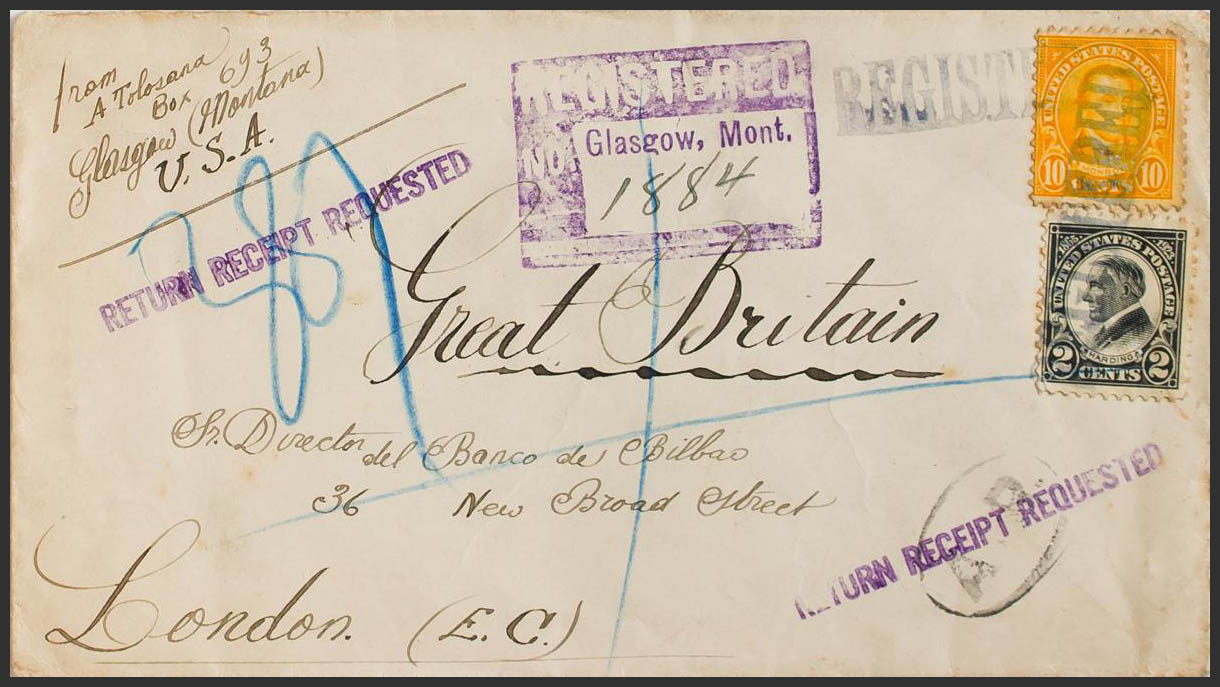 from
A Tolosana
Box 693
Glasgow (Montana)
U.S.A.
RETURN RECEIPT REQUESTED
REGISTERED
NO.
Glasgow, Mont.
1884
REGISTERED
UNITED STATES POSTAGE
MONROE
10 CENTS 10
1865 1923
UNITED STATES POSTAGE
HARDING
2 CENTS 2
Great Britain
Sr. Director del Banco de Bilbao
36 New Broad Street
London. (E.C.)
RETURN RECEIPT REQUESTED
A.R.